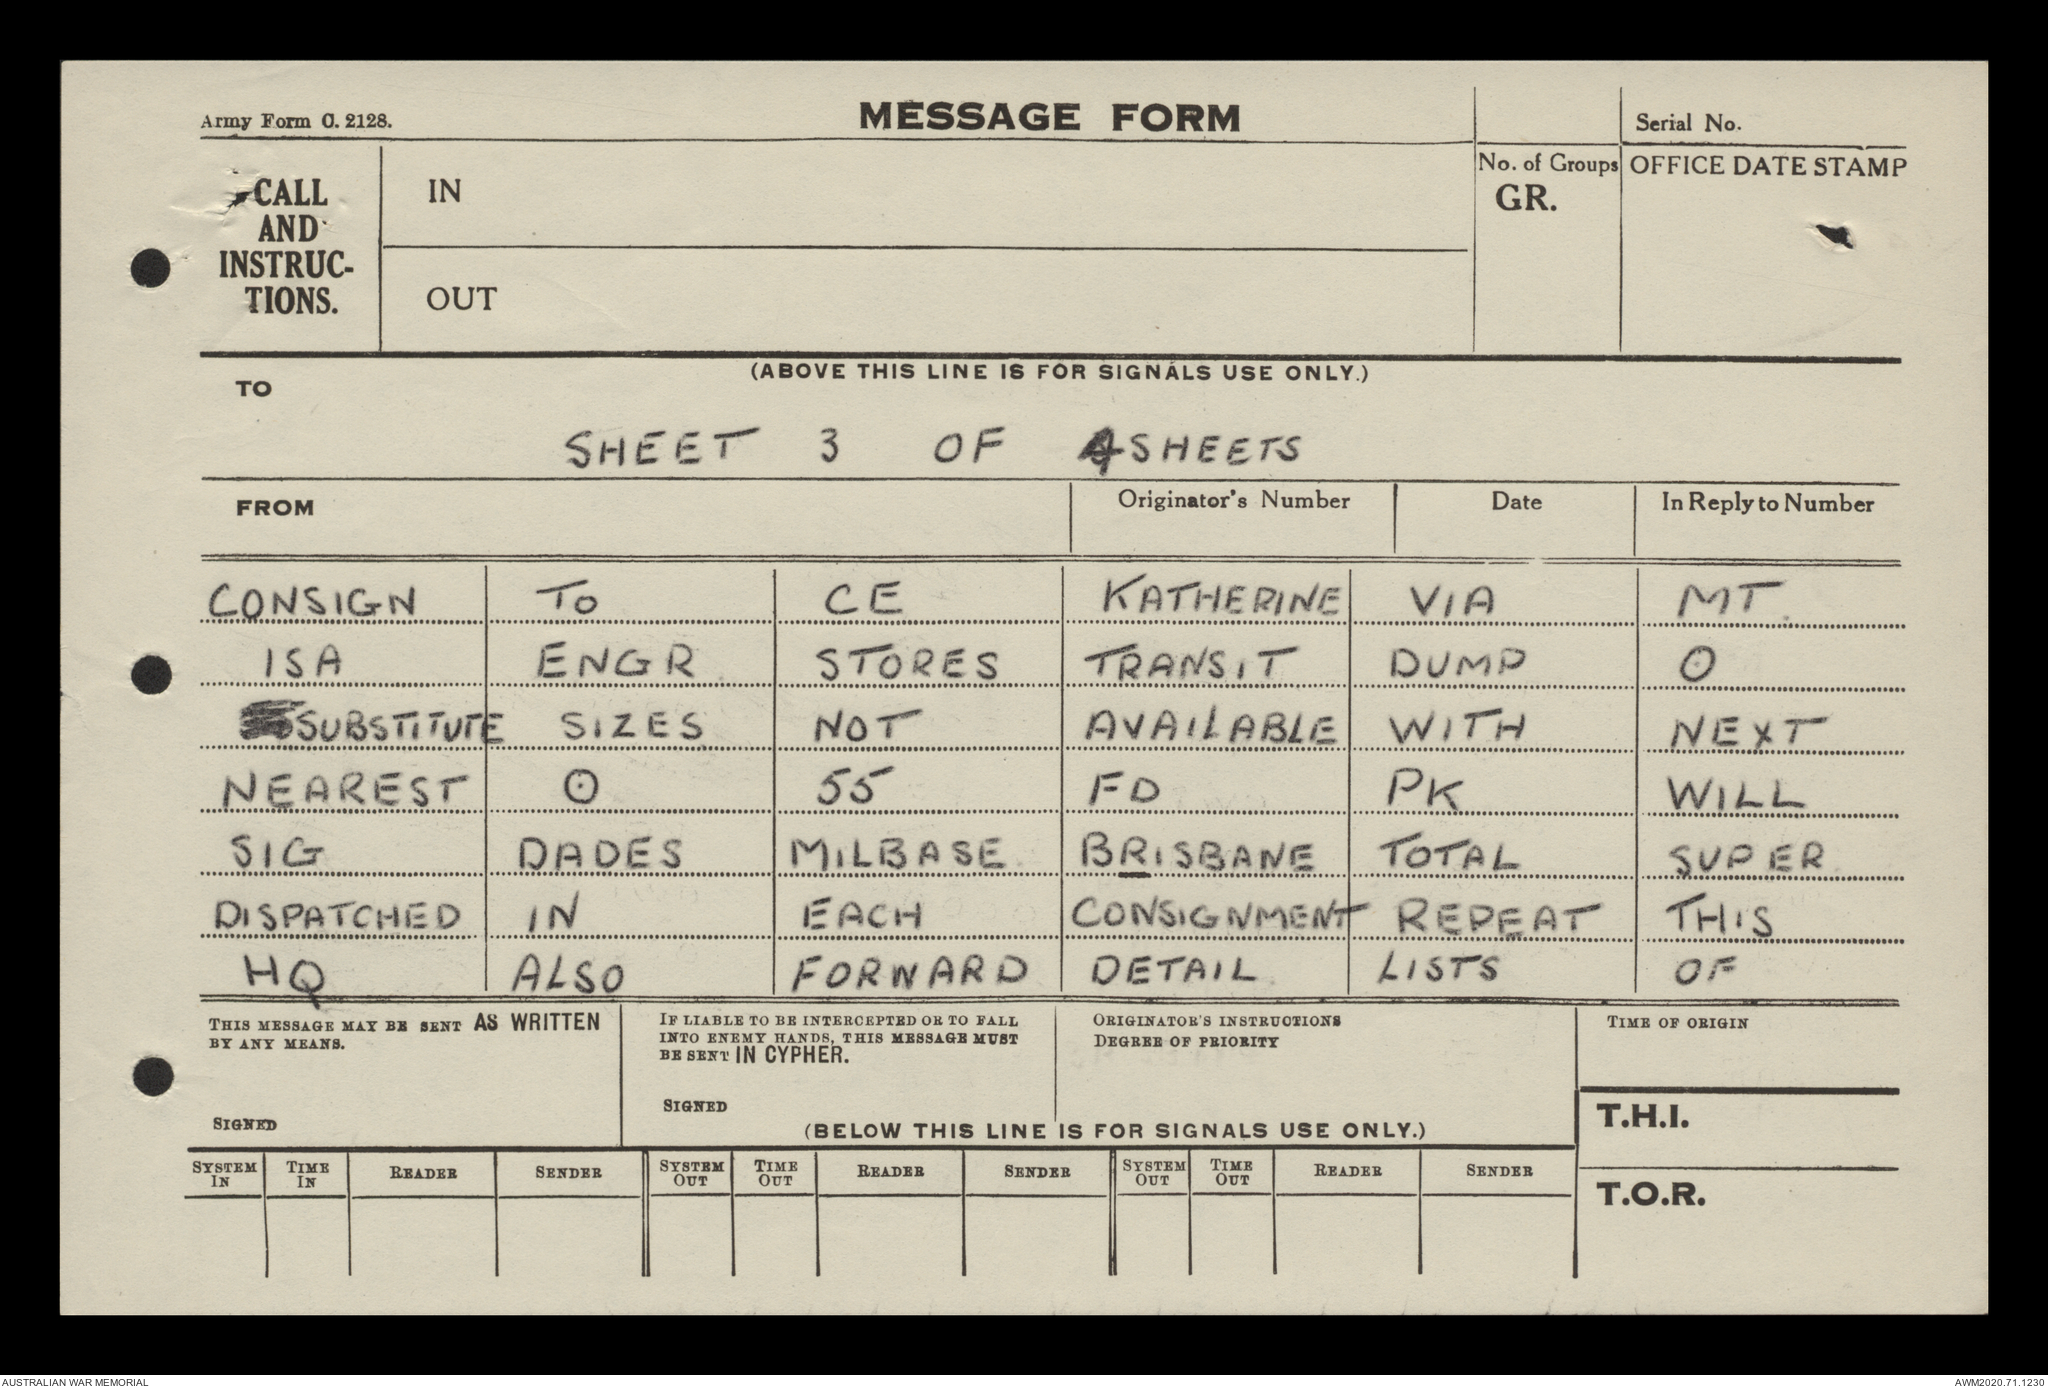 Army Form C. 2128.
MESSAGE FORM
Serial No.
CALL
AND
INSTRUC-
TIONS.
IN
OUT
No. of Groups
GR.
OFFICE DATE STAMP
(ABOVE THIS LINE IS FOR SIGNALS USE ONLY.)
TO
SHEET 3 OF 4 SHEETS
FROM
Originator's Number
Date
In Reply to Number
CONSIGN TO CE KATHERINE VIA MT.
ISA ENGR STORES TRANSIT DUMP ⊙
SUBSTITUTE SIZES NOT AVAILABLE WITH NEXT
NEAREST ⊙ 55 FD PK WILL
SIG DADES MILBASE BRISBANE TOTAL SUPER
DISPATCHED IN EACH CONSIGNMENT REPEAT THIS
HQ ALSO FORWARD DETAIL LISTS OF
THIS MESSAGE MAY BE SENT AS WRITTEN
BY ANY MEANS.
SIGNED
IF LIABLE TO BE INTERCEPTED OR TO FALL
INTO ENEMY HANDS, THIS MESSAGE MUST
BE SENT IN CYPHER.
SIGNED
ORIGINATOR'S INSTRUCTIONS
DEGREE OF PRIORITY
TIME OF ORIGIN
(BELOW THIS LINE IS FOR SIGNALS USE ONLY.)
T.H.I.
T.O.R.
SYSTEM IN
TIME IN
READER
SENDER
SYSTEM OUT
TIME OUT
READER
SENDER
SYSTEM OUT
TIME OUT
READER
SENDER
AUSTRALIAN WAR MEMORIAL
AWM2020.71.1230